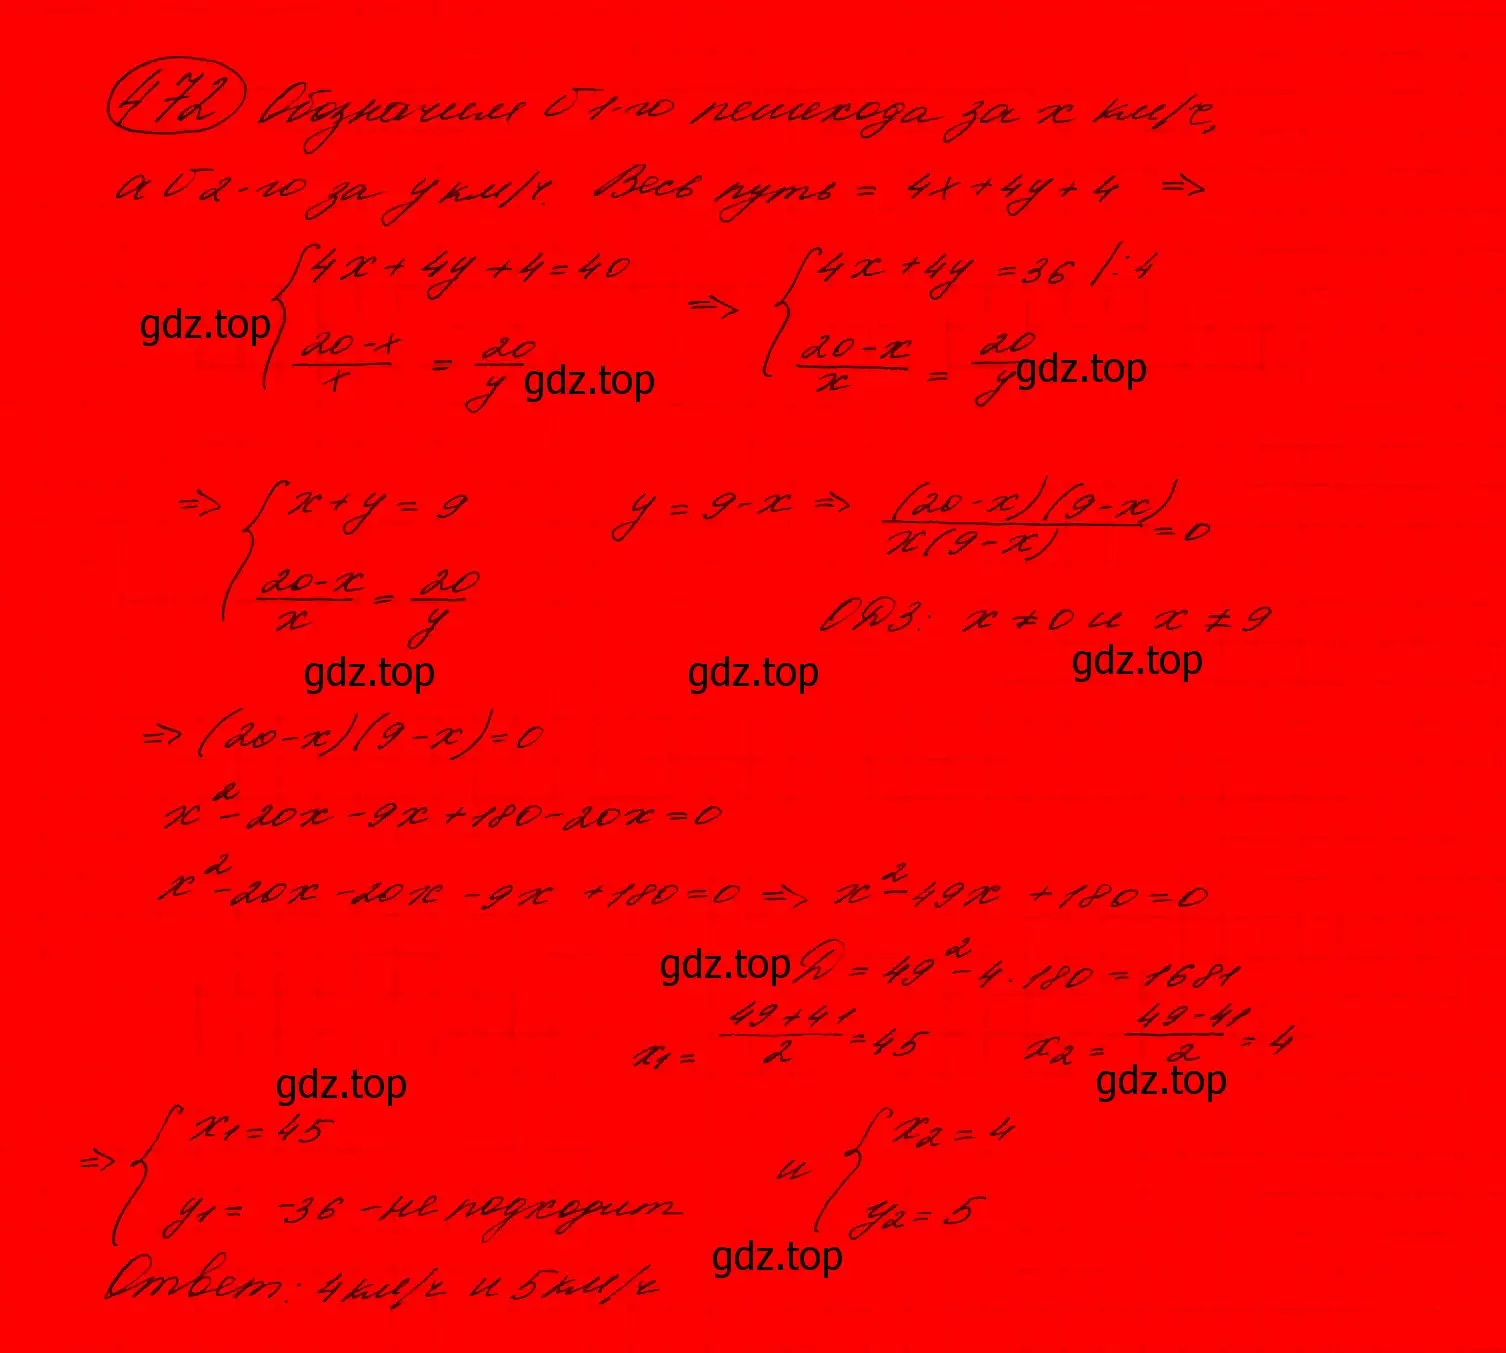 472 Обозначим V 1-го пешехода за x км/ч,
а V 2-го за y км/ч. Весь путь = 4x + 4y + 4 =>
{ 4x + 4y + 4 = 40 => { 4x + 4y = 36 /:4
gdz.top
(20-x)/x = 20/y (20-x)/x = 20/y
gdz.top gdz.top
=> { x + y = 9 y = 9 - x => ((20-x)(9-x))/(x(9-x)) = 0
(20-x)/x = 20/y ОДЗ: x ≠ 0 и x ≠ 9
gdz.top gdz.top gdz.top
=> (20-x)(9-x) = 0
x² - 20x - 9x + 180 - 20x = 0
x² - 20x - 20x - 9x + 180 = 0 => x² - 49x + 180 = 0
gdz.top Д = 49² - 4·180 = 1681
x1 = (49+41)/2 = 45 x2 = (49-41)/2 = 4
gdz.top gdz.top
=> { x1 = 45 и { x2 = 4
y1 = -36 - не подходит y2 = 5
gdz.top
Ответ: 4 км/ч и 5 км/ч